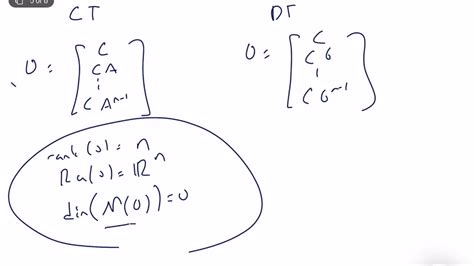 CT
DT
O = [ C
CA
⋮
CA^n-1 ]
O = [ C
CG
⋮
CG^n-1 ]
rank(O) = n
Ra(O) = ℝ^n
dim(N(O)) = 0